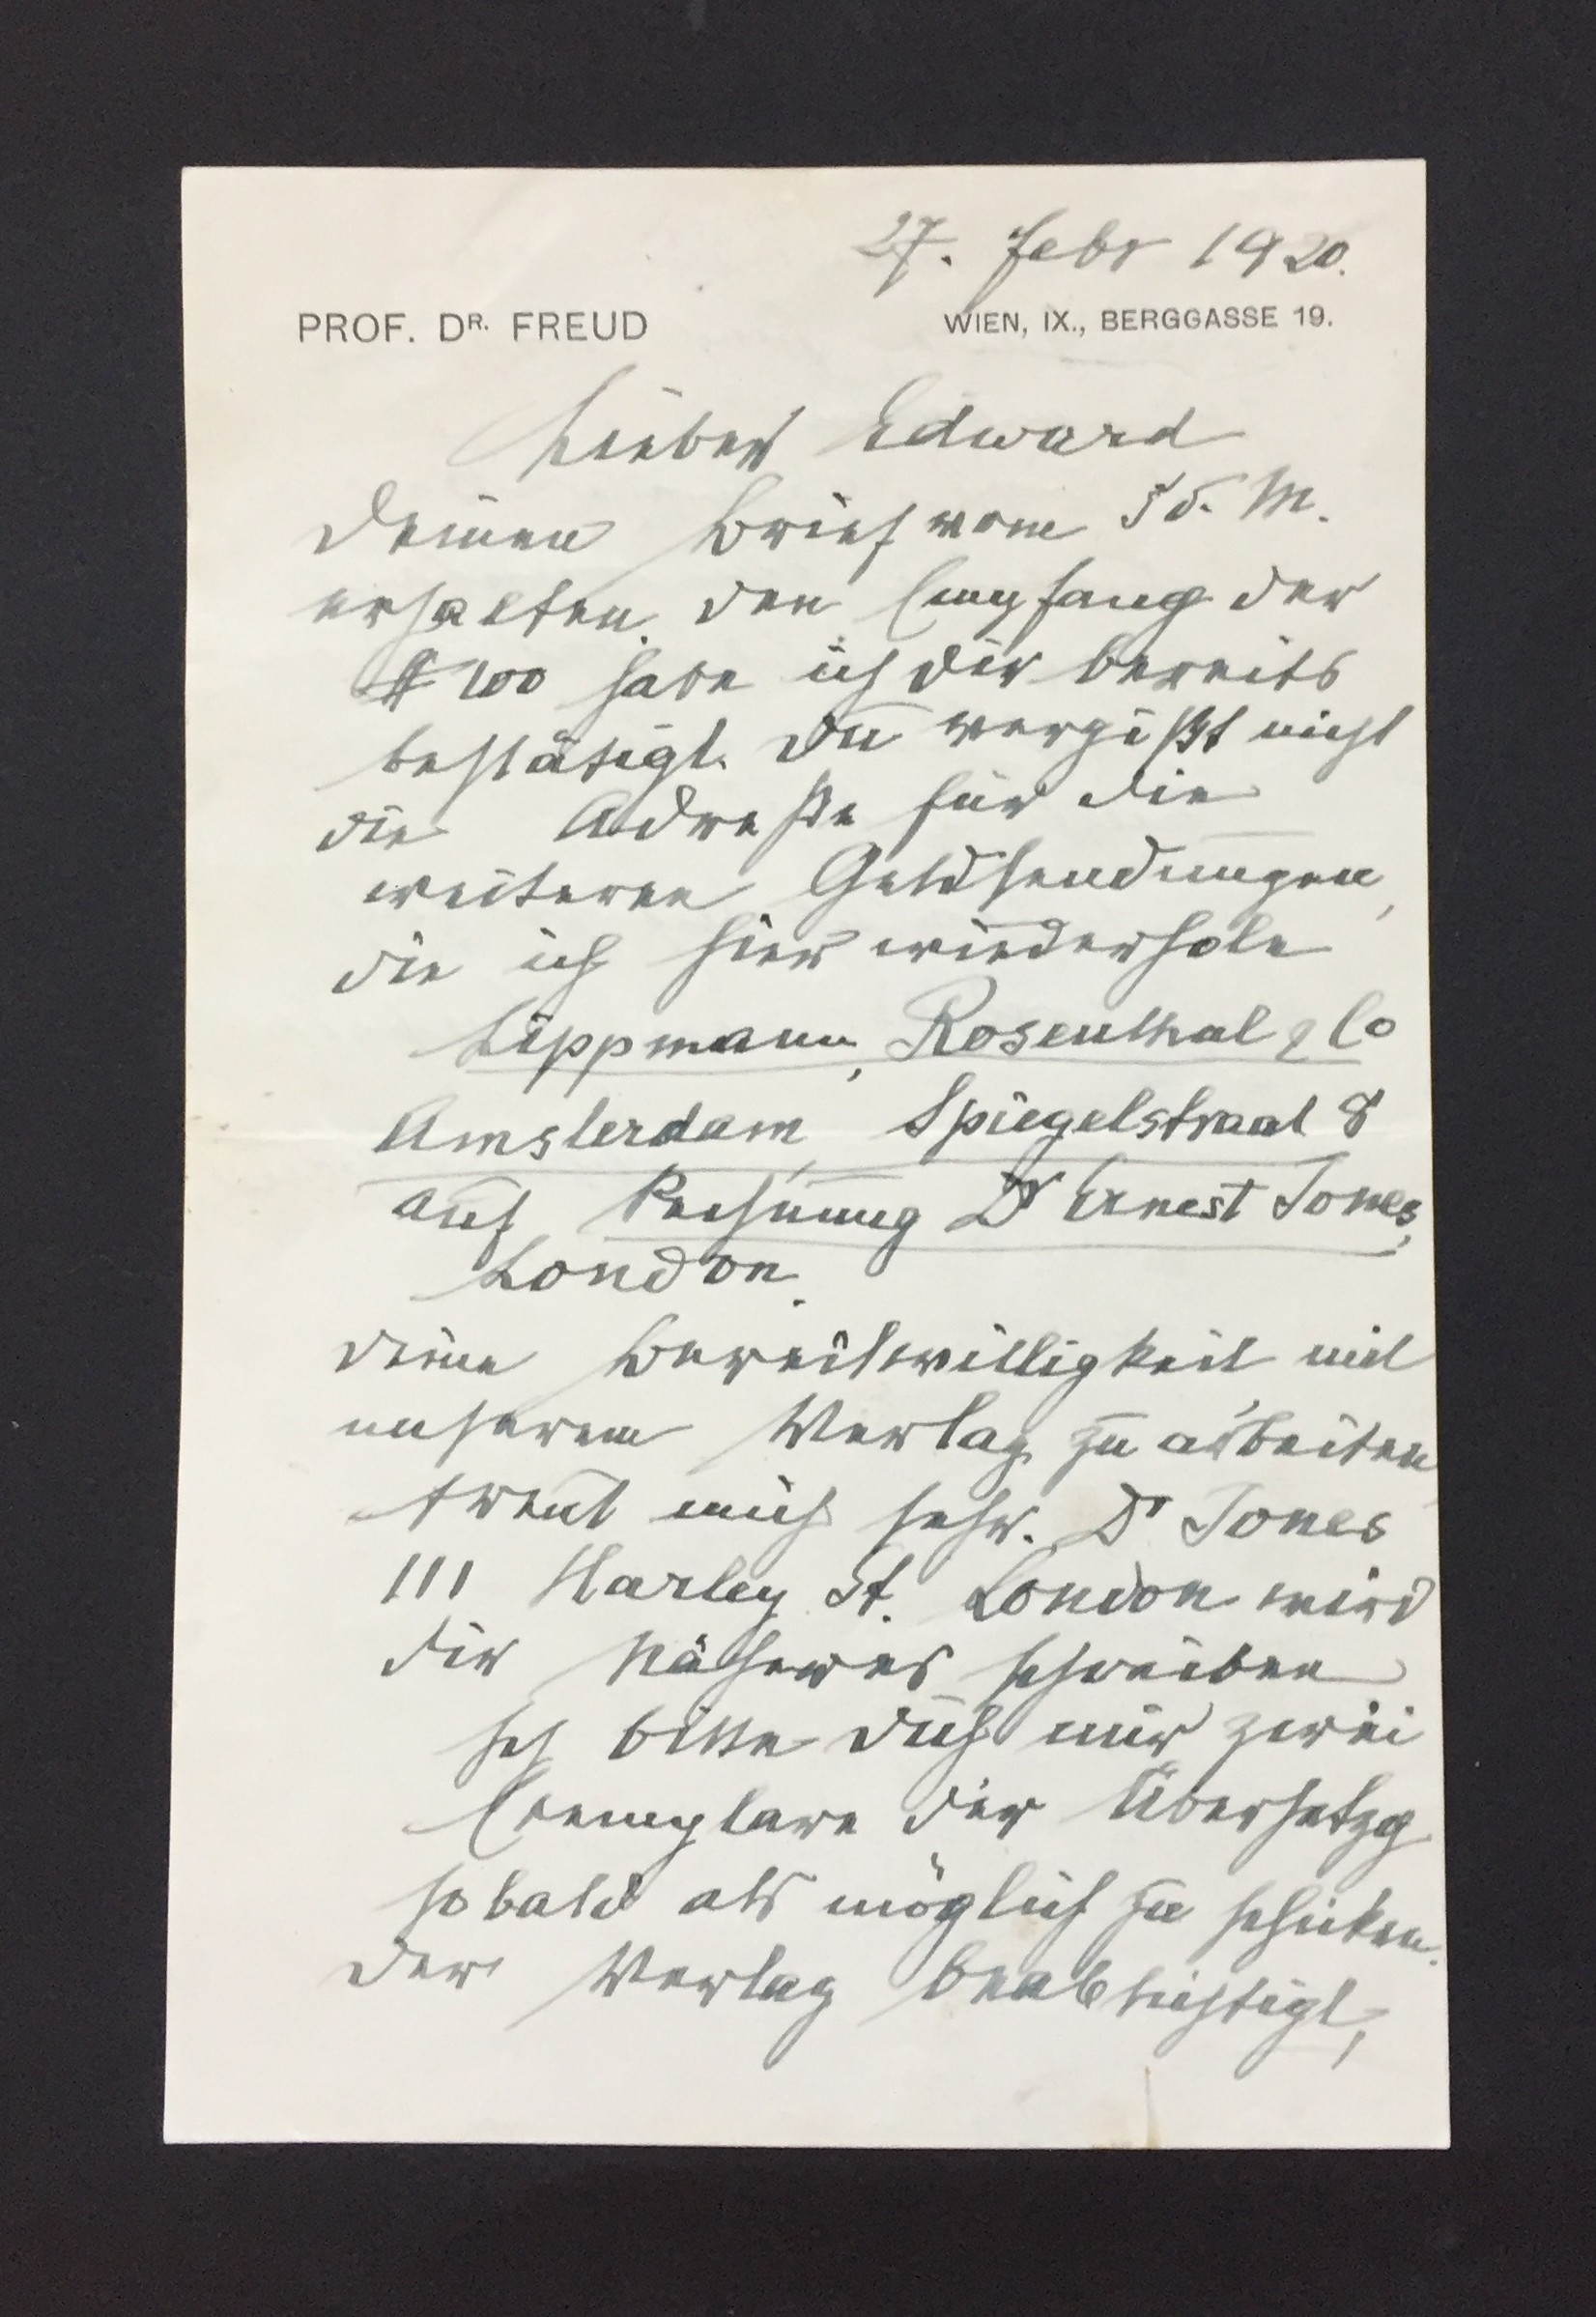 27. Febr 1920.
PROF. DR. FREUD
WIEN, IX., BERGGASSE 19.
Lieber Edward
Deinen Brief vom 5 d. M.
erhalten. Den Empfang der
$ 100 habe ich dir bereits
bestätigt. Du vergißt nicht
die Adreße für die
weiteren Geldsendungen,
die ich hier wiederhole
Lippmann, Rosenthal & Co
Amsterdam, Spiegelstraat 8
auf Rechnung Dr Ernest Jones,
London.
Deine Bereitwilligkeit mit
unserem Verlag zu arbeiten
freut mich sehr. Dr Jones
111 Harley St. London wird
dir Näheres schreiben
Ich bitte dich mir zwei
Exemplare der Übersetzg
sobald als möglich zu schicken.
Der Verlag beabsichtigt,